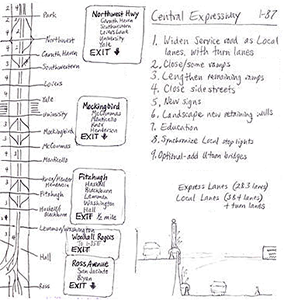 Park
Northwest
Caruth Haven
Southwestern
Lovers
Yale
University
Mockingbird
McCommas
Monticello
Henderson
Fitzhugh
Haskell
Blackburn
Lemmon/Washington
Hall
Ross
Northwest Hwy
Caruth Haven
Southwestern
Lovers Lane
University
Yale
EXIT
Mockingbird
McCommas
Monticello
Knox
Henderson
EXIT
Fitzhugh
Haskell
Blackburn
Lemmon
Washington
Hall
EXIT 1/2 mile
Woodall Rogers
To I-35E
EXIT
Ross Avenue
San Jacinto
Bryan
EXIT
Central Expressway 1-87
1. Widen Service road as Local lanes, with turn lanes
2. Close/some ramps
3. Lengthen remaining ramps
4. Close sidestreets
5. New signs
6. Landscape new retaining walls
7. Education
8. Synchronize Local stop lights
9. Optional-add Urban bridges
Express Lanes
Local Lanes
+ turn lanes